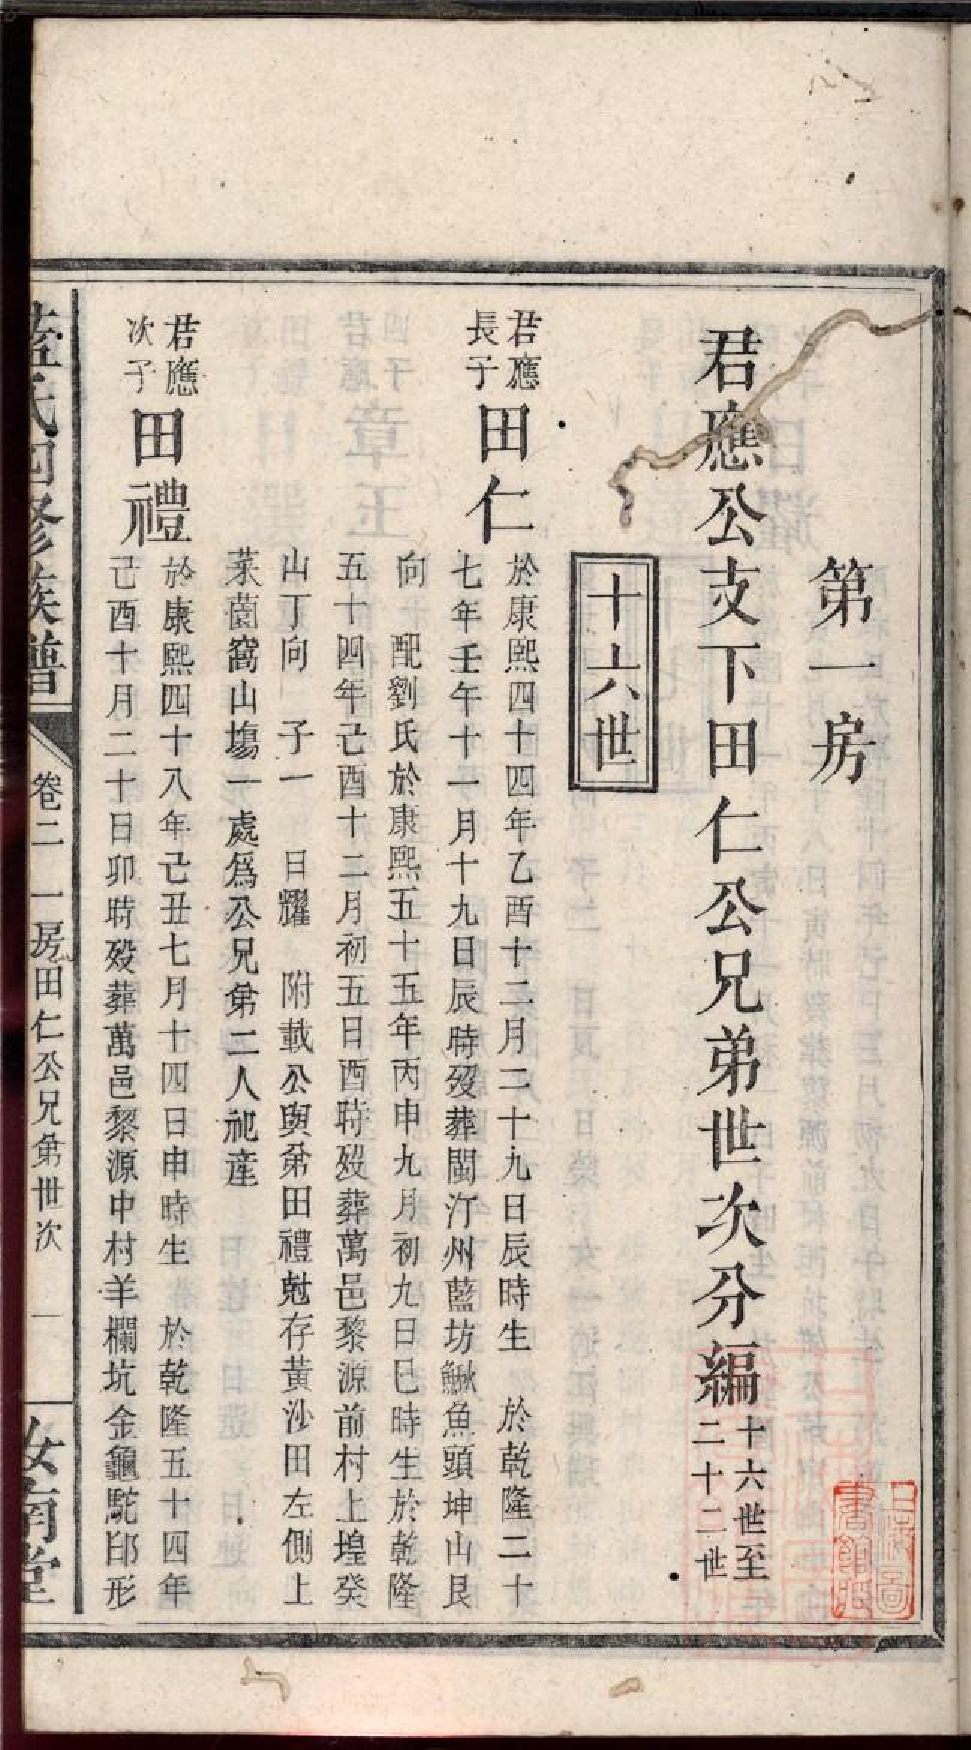 第一房
君應公支下田仁公兄弟世次分編 十六世至二十二世
十六世
君應長子 田仁
於康熙四十四年乙酉十二月二十九日辰時生 於乾隆二十
七年壬午十一月十九日辰時歿葬閩汀州藍坊鰍魚頭坤山艮
向 配劉氏於康熙五十五年丙申九月初九日巳時生於乾隆
五十四年己酉十二月初五日酉時歿葬萬邑黎源前村上堭癸
山丁向 子一 日耀 附載公與弟田禮尅存黃沙田左側上
萊薗窩山塲一處爲公兄弟二人祀産
君應次子 田禮
於康熙四十八年己丑七月十四日申時生 於乾隆五十四年
己酉十月二十日卯時歿葬萬邑黎源中村羊欄坑金龜駝印形
藍氏四修族譜
卷二 一房田仁公兄弟世次 一
汝南堂